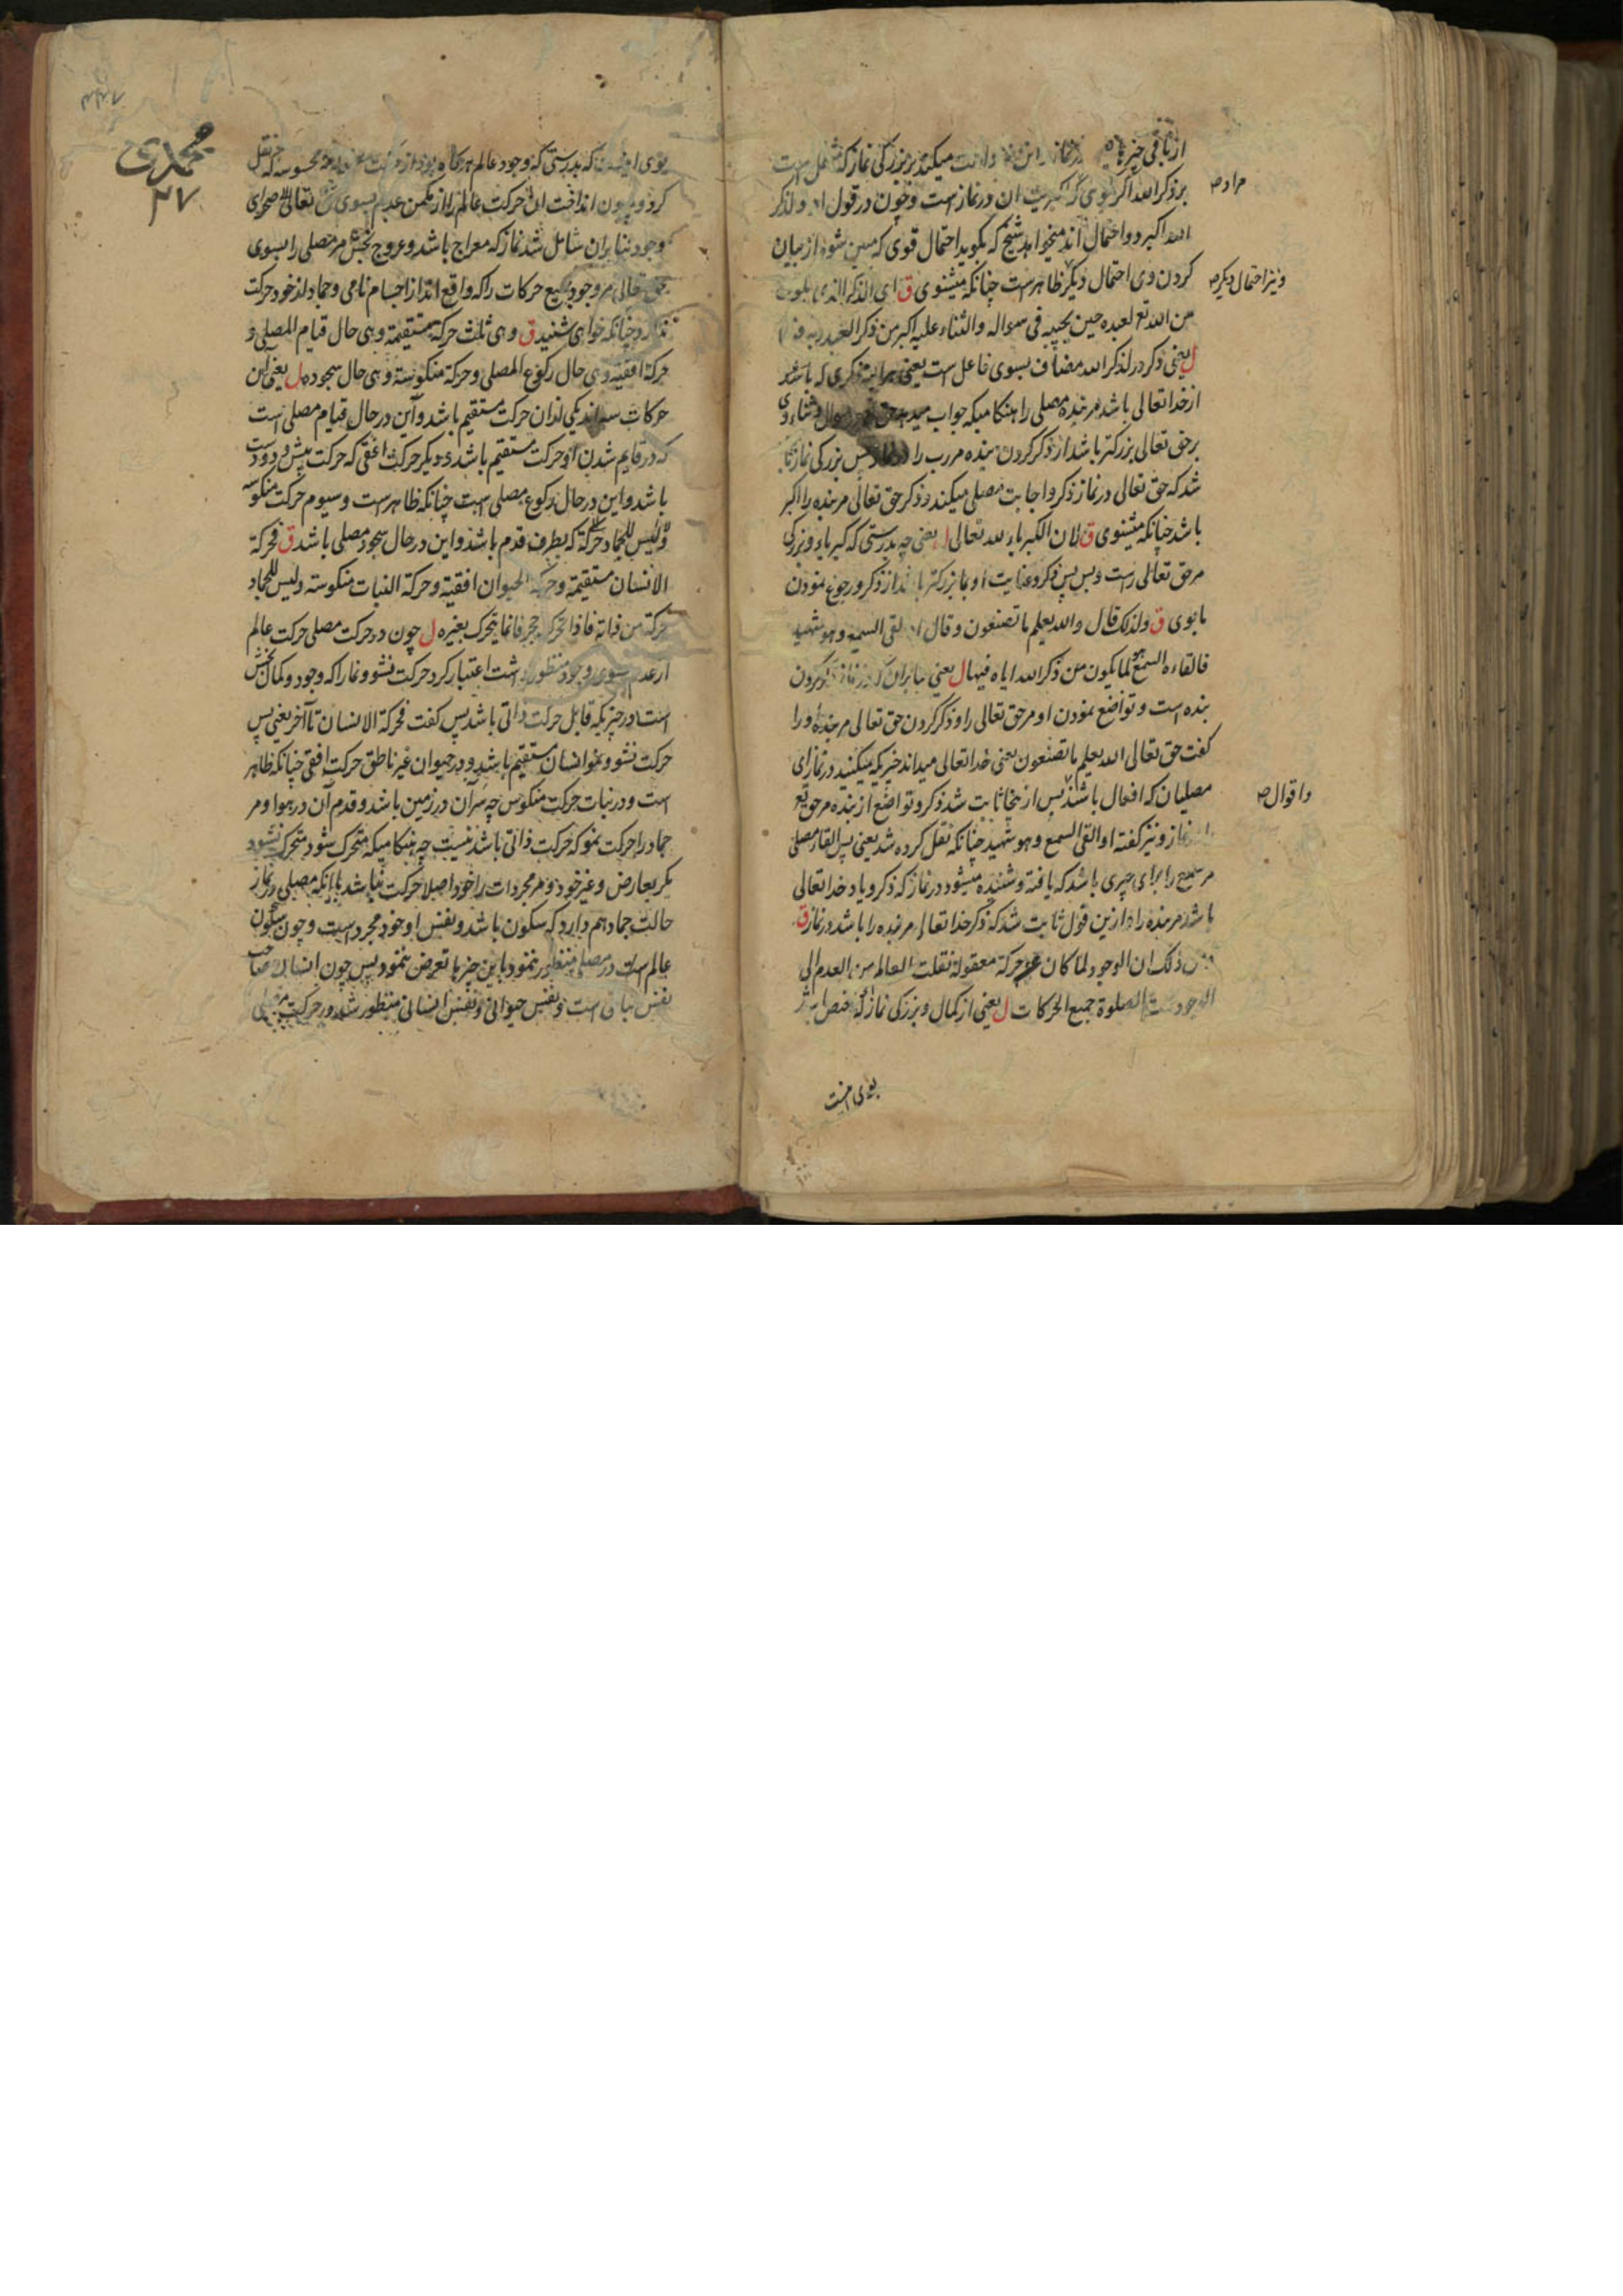 از باقی چیزها در نماز میکند بر بزرگی نماز که است
مراد ص
بر ذکر الله اکبر در نماز است و چون در قول او و لذکر
الله اکبر دو احتمال اند میخواهد شیخ که بگوید احتمال قوی که مبین شود از بیان
کردن وی احتمال دیگر ظاهر است چنانکه میشنوی ق ای الذکر الذی یکون
و نیز احتمال دیگر ص
من الله تع لعبده حین یجیبه فی سواله والثناء علیه اکبر من ذکر العبد ربه
ل یعنی ذکر در لذکر الله مضاف بسوی فاعل است یعنی هر اینه ذکری که باشد
از خدا تعالی باشد مر بنده مصلی را هنگامیکه جواب میدهد و ثناء وی
بر حق تعالی بزرگتر باشد از ذکر کردن بنده مر رب را پس بزرگی نماز
شد که حق تعالی در نماز ذکر و اجابت مصلی میکند و ذکر حق تعالی مر بنده را اکبر
باشد چنانکه میشنوی ق لان الکبریاء لله تعالی ل یعنی چه بدرستی که کبریاء و بزرگی
مر حق تعالی راست و بس پس ذکر و عنایت او بما بزرگتر باشد از ذکر و رجوع نمودن
ما بوی ق ولذلک قال والله یعلم ما تصنعون وقال او القی السمع وهو شهید
فالقاءه السمع هو لما یکون من ذکر الله ایاه فیها ل یعنی بنابران که در نماز ذکر کردن
بنده است و تواضع نمودن او مر حق تعالی را و ذکر کردن حق تعالی مر بنده او را
گفت حق تعالی الله یعلم ما تصنعون یعنی خدا تعالی میداند چیزیکه میکنید در نماز ای
مصلیان که افعال باشند پس از ینجا ثابت شد ذکر و تواضع از بنده مر حق تع
و اقوال ص
نماز و نیز گفته او القی السمع وهو شهید چنانکه نقل کرده شد یعنی پس القاء مصلی
مر سمع را برای چیزی باشد که یافته و شنیده میشود در نماز که ذکر و یاد خدا تعالی
باشد مر بنده را و ازین قول ثابت شد که ذکر خدا تعالی مر بنده را باشد در نماز ق
ومن ذلک ان الوجود لما کان عن حرکة معقولة نقلت العالم من العدم الی
الوجود عمت الصلوة جمیع الحرکات ل یعنی از کمال و بزرگی نماز که
بوی اینست
محمدی
۲۷
بوی اینست که بدرستی که وجود عالم هرگاه بود از که نقل
کرد و بیرون انداخت این حرکت عالم را از مکمن عدم بسوی تعالی صحرای
وجود بنابران شامل شد نماز که معراج باشد و عروج بخش مر مصلی را بسوی
حق تعالی مر وجود جمیع حرکات را که واقع اند از اجسام نامی و جماد از خود حرکت
ندارد چنانکه خواهی شنید ق وهی ثلث حرکة مستقیمة وهی حال قیام المصلی و
حرکة افقیة وهی حال رکوع المصلی وحرکة منکوسة وهی حال سجوده ل یعنی این
حرکات سه اند یکی ازان حرکت مستقیم باشد و آن در حال قیام مصلی است
که در قایم شدن او حرکت مستقیم باشد و دیگر حرکت افقی که حرکت پیش رو
باشد و این در حال رکوع مصلی است چنانکه ظاهر است و سیوم حرکت منکوسه
که بطرف قدم باشد و این در حال سجود مصلی باشد ق فحرکة
الانسان مستقیمة وحرکة الحیوان افقیة وحرکة النبات منکوسة ولیس للجماد
حرکة من ذاته فاذا تحرک حجر فانما یتحرک بغیره ل چون در حرکت مصلی حرکت عالم
از عدم بسوی وجود منظور داشت اعتبار کرد حرکت نشو و نما را که وجود و کمال بخش
است در چیزیکه قابل حرکت ذاتی باشد پس گفت فحرکة الانسان تا آخر یعنی پس
حرکت نشو و نمو انسان مستقیم باشد و در حیوان غیر ناطق حرکت افقی چنانکه ظاهر
است و در نبات حرکت منکوس چه سر آن در زمین باشد و قدم آن در هوا و مر
جماد را حرکت نمو که حرکت ذاتی باشد نیست چه هنگامیکه متحرک شود متحرک نشود
مگر بعارض و غیر خود و مر مجردات را خود اصلا حرکت نباشد با آنکه مصلی در نماز
حالت جماد هم دارد که سکون باشد و نفس او خود مجرد است و چون سکون
عالم است در مصلی منظور ننمود باین چیزها تعرض ننمود پس چون انسان صاحب
نفس نباتی است و نفس حیوانی و نفس انسانی منظور شد در حرکت